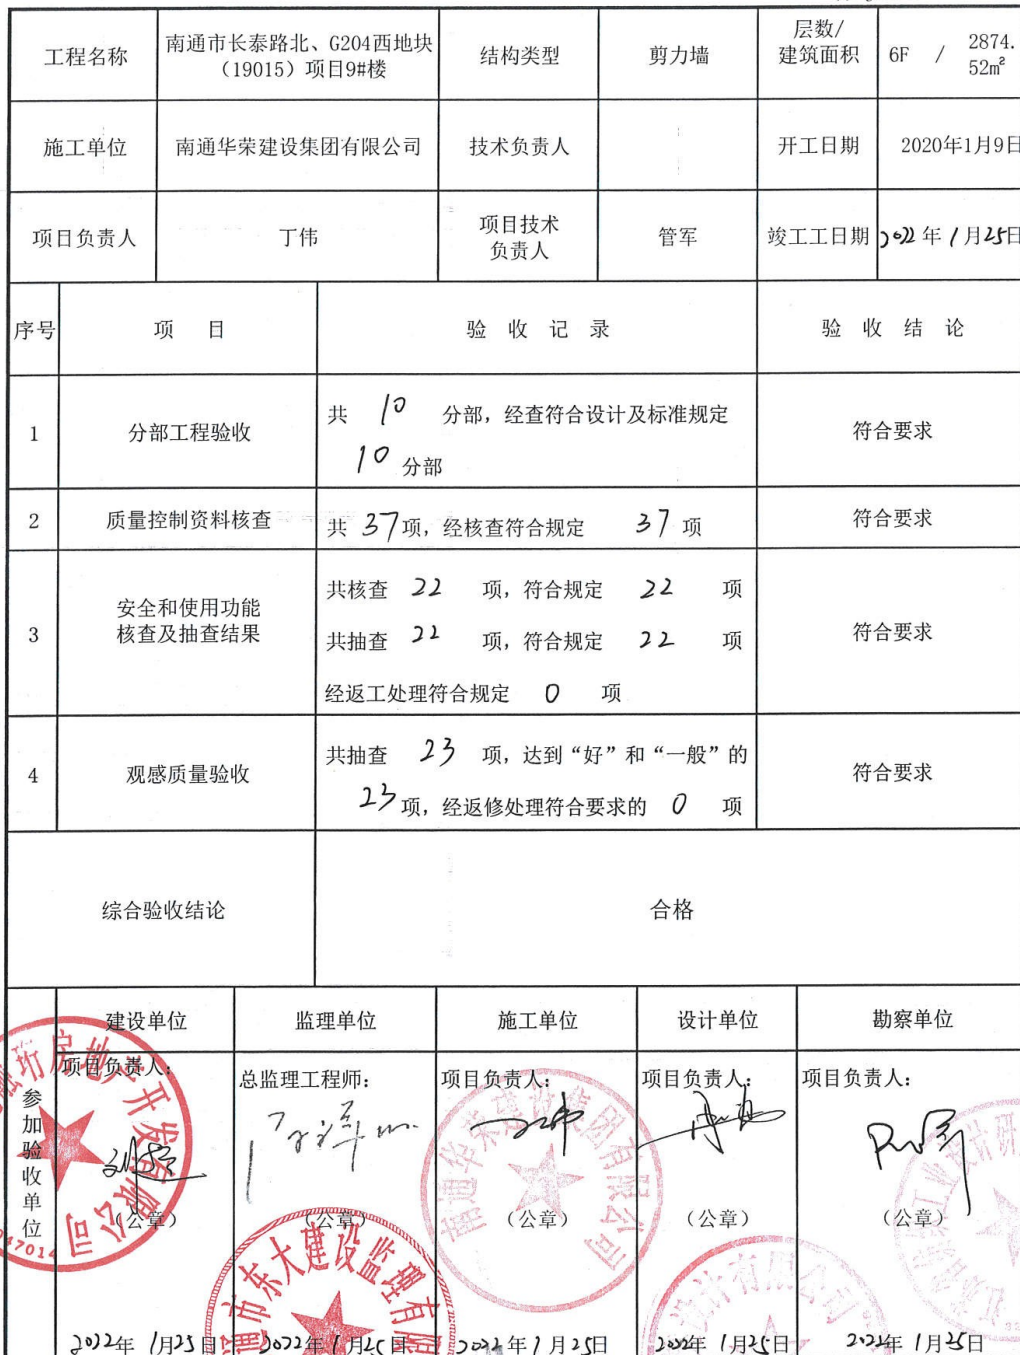 工程名称
南通市长泰路北、G204西地块
（19015）项目9#楼
结构类型
剪力墙
层数/
建筑面积
6F / 2874.
52m²
施工单位
南通华荣建设集团有限公司
技术负责人
开工日期
2020年1月9日
项目负责人
丁伟
项目技术
负责人
管军
竣工工日期
2022年1月25日
序号
项 目
验 收 记 录
验 收 结 论
1
分部工程验收
共 10 分部，经查符合设计及标准规定
10 分部
符合要求
2
质量控制资料核查
共 37项，经核查符合规定 37 项
符合要求
3
安全和使用功能
核查及抽查结果
共核查 22 项，符合规定 22 项
共抽查 22 项，符合规定 22 项
经返工处理符合规定 0 项
符合要求
4
观感质量验收
共抽查 23 项，达到“好”和“一般”的
23项，经返修处理符合要求的 0 项
符合要求
综合验收结论
合格
参加验收单位
建设单位
监理单位
施工单位
设计单位
勘察单位
项目负责人：
总监理工程师：
项目负责人：
项目负责人：
项目负责人：
（公章）
（公章）
（公章）
（公章）
（公章）
房地产开发有限公司
47014
东大建设监理有限
南通华荣建设集团有限公司
设计有限公司
2022年 1月25日
2022年 1月25日
2022年 1月25日
2022年 1月25日
2022年 1月25日